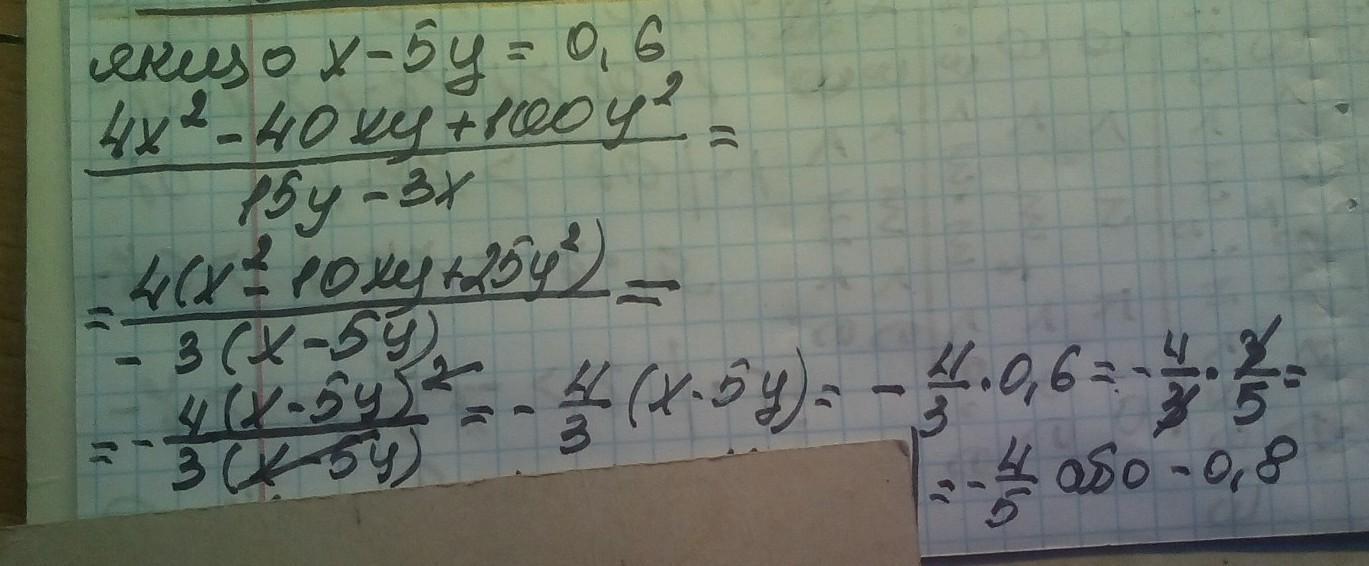 якщо x - 5y = 0,6
4x² - 40xy + 100y² =
15y - 3x
= 4(x² - 10xy + 25y²) =
- 3(x - 5y)
= - 4(x - 5y)² / 3(x - 5y) = - 4/3 (x - 5y) = - 4/3 · 0,6 = - 4/3 · 3/5 =
= - 4/5 або - 0,8